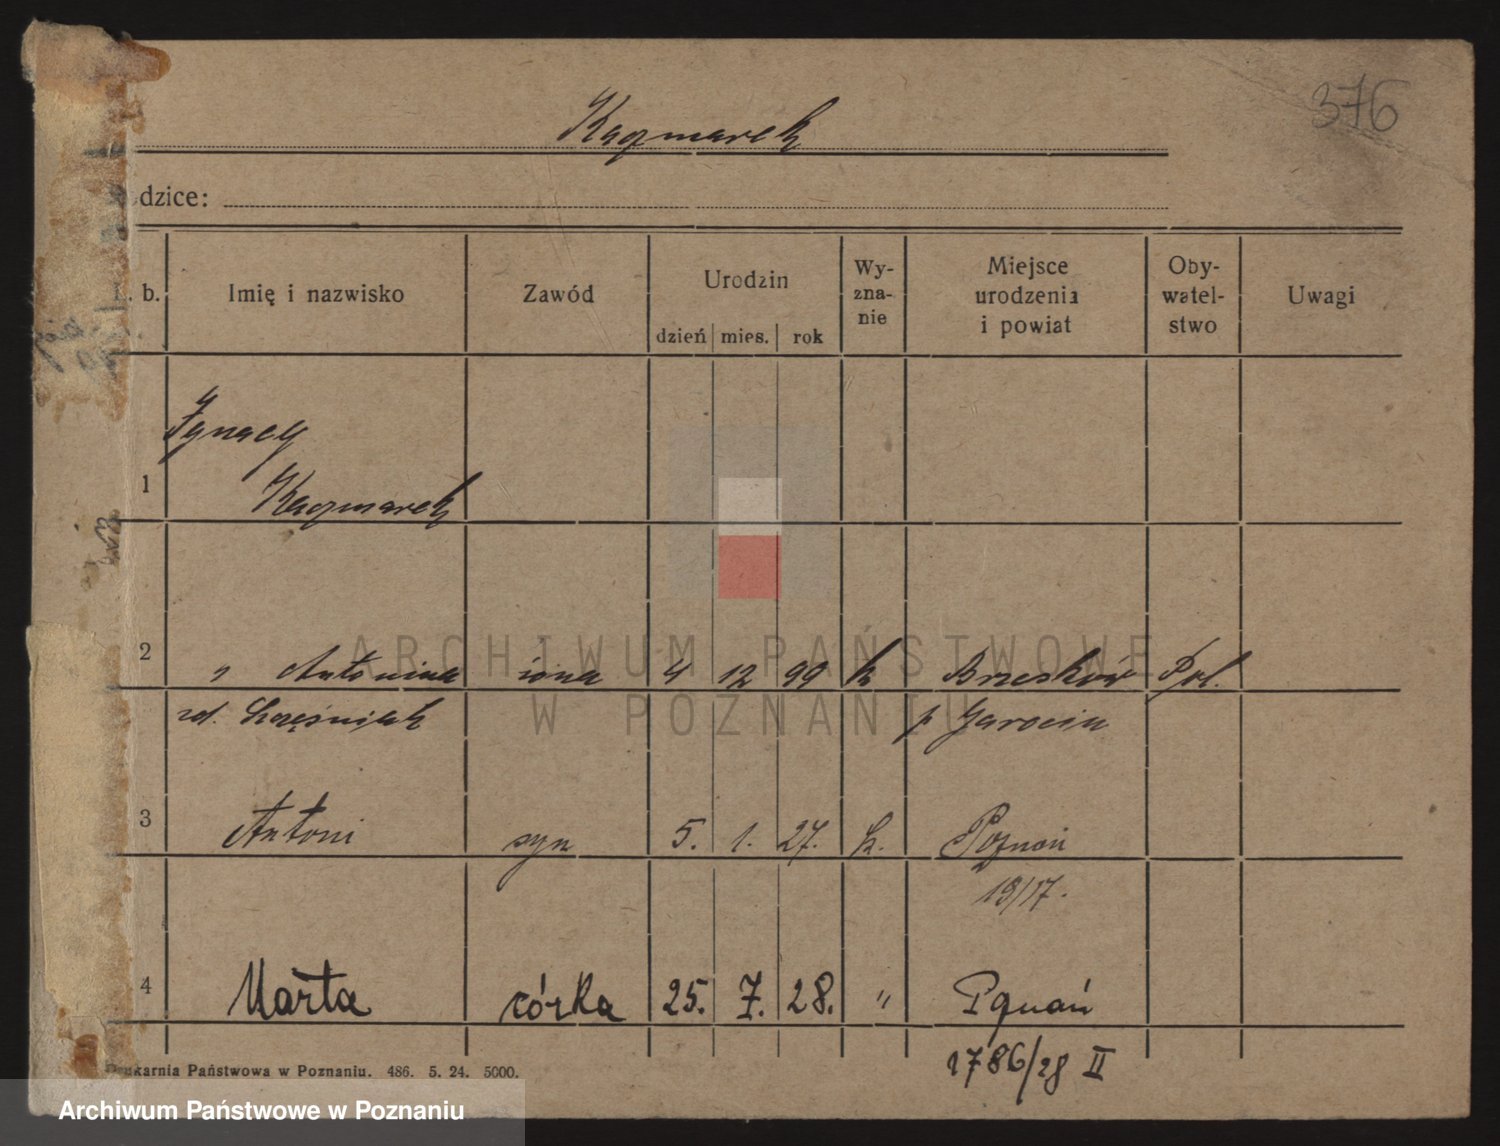 376
Kaczmarek
dzice:
. b.
Imię i nazwisko
Zawód
Urodzin
dzień mies. rok
Wy-
zna-
nie
Miejsce
urodzenia
i powiat
Oby-
watel-
stwo
Uwagi
Ignacy
1 Kaczmarek
2 " Antonina żona 4 12 99 k Brzesków Pol.
zd. Szcześniak p Jarocin
3 Antoni syn 5. 1. 27. k. Poznań
19/17.
4 Marta córka 25. 7. 28. " Poznań
1786/28 II
ukarnia Państwowa w Poznaniu. 486. 5. 24. 5000.
ARCHIWUM PAŃSTWOWE
W POZNANIU
Archiwum Państwowe w Poznaniu